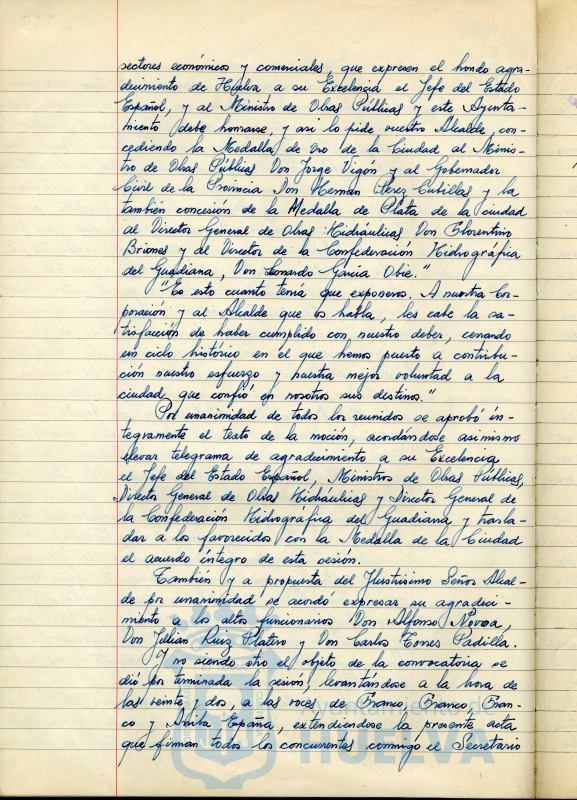 sectores económicos y comerciales, que expresen el hondo agra-
decimiento de Huelva a su Excelencia el Jefe del Estado
Español, y al Ministro de Obras Públicas y este Ayunta-
miento debe honrarse, y asi lo pide vuestro Alcalde, con-
cediendo la Medalla de oro de la Ciudad al Minis-
tro de Obras Públicas Don Jorge Vigón y al Gobernador
Civil de la Provincia Don Hernan Pérez Cubillas y la
también concesión de la Medalla de Plata de la ciudad
al Director General de Obras Hidráulicas Don Florentino
Briones y al Director de la Confederación Hidrográfica
del Guadiana, Don Leonardo García Obie."
"Es esto cuanto tenía que exponeros. A nuestra Cor-
poración y al Alcalde que os habla, les cabe la sa-
tisfacción de haber cumplido con nuestro deber, cerrando
un ciclo histórico en el que hemos puesto a contribu-
ción nuestro esfuerzo y nuestra mejor voluntad a la
ciudad que confió en nosotros sus destinos."
Por unanimidad de todos los reunidos se aprobó ín-
tegramente el texto de la moción, acordándose asimismo
elevar telegrama de agradecimiento a su Excelencia
el Jefe del Estado Español, Ministros de Obras Públicas,
Director General de Obras Hidráulicas y Director General de
la Confederación Hidrográfica del Guadiana y trasla-
dar a los favorecidos con la Medalla de la Ciudad
el acuerdo íntegro de esta sesión.
También y a propuesta del Ilustrisimo Señor Alcal-
de por unanimidad se acordó expresar su agradeci-
miento a los altos funcionarios Don Alfonso Novoa,
Don Julián Ruiz Platero y Don Carlos Torres Padilla.
Y no siendo otro el objeto de la convocatoria se
dió por terminada la sesión, levantándose a la hora de
las veinte y dos, a las voces de Franco, Franco, Fran-
co y Arriba España, extendiéndose la presente acta
que firman todos los concurrentes conmigo el Secretario
HUELVA